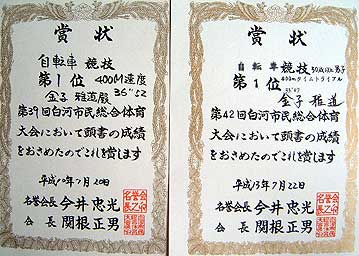 賞状
自転車 競技
第1位 400M速度
36"52
金子 雅道殿
第39回白河市民総合体育
大会において頭書の成績
をおさめたのでこれを賞します
平成10年7月20日
名誉会長 今井忠光
会長 関根正男
賞状
自転車 競技 30歳以上男子
第1位 400mタイムトライアル
金子 雅道
第42回白河市民総合体育
大会において頭書の成績
をおさめたのでこれを賞します
平成13年7月22日
名誉会長 今井忠光
会長 関根正男